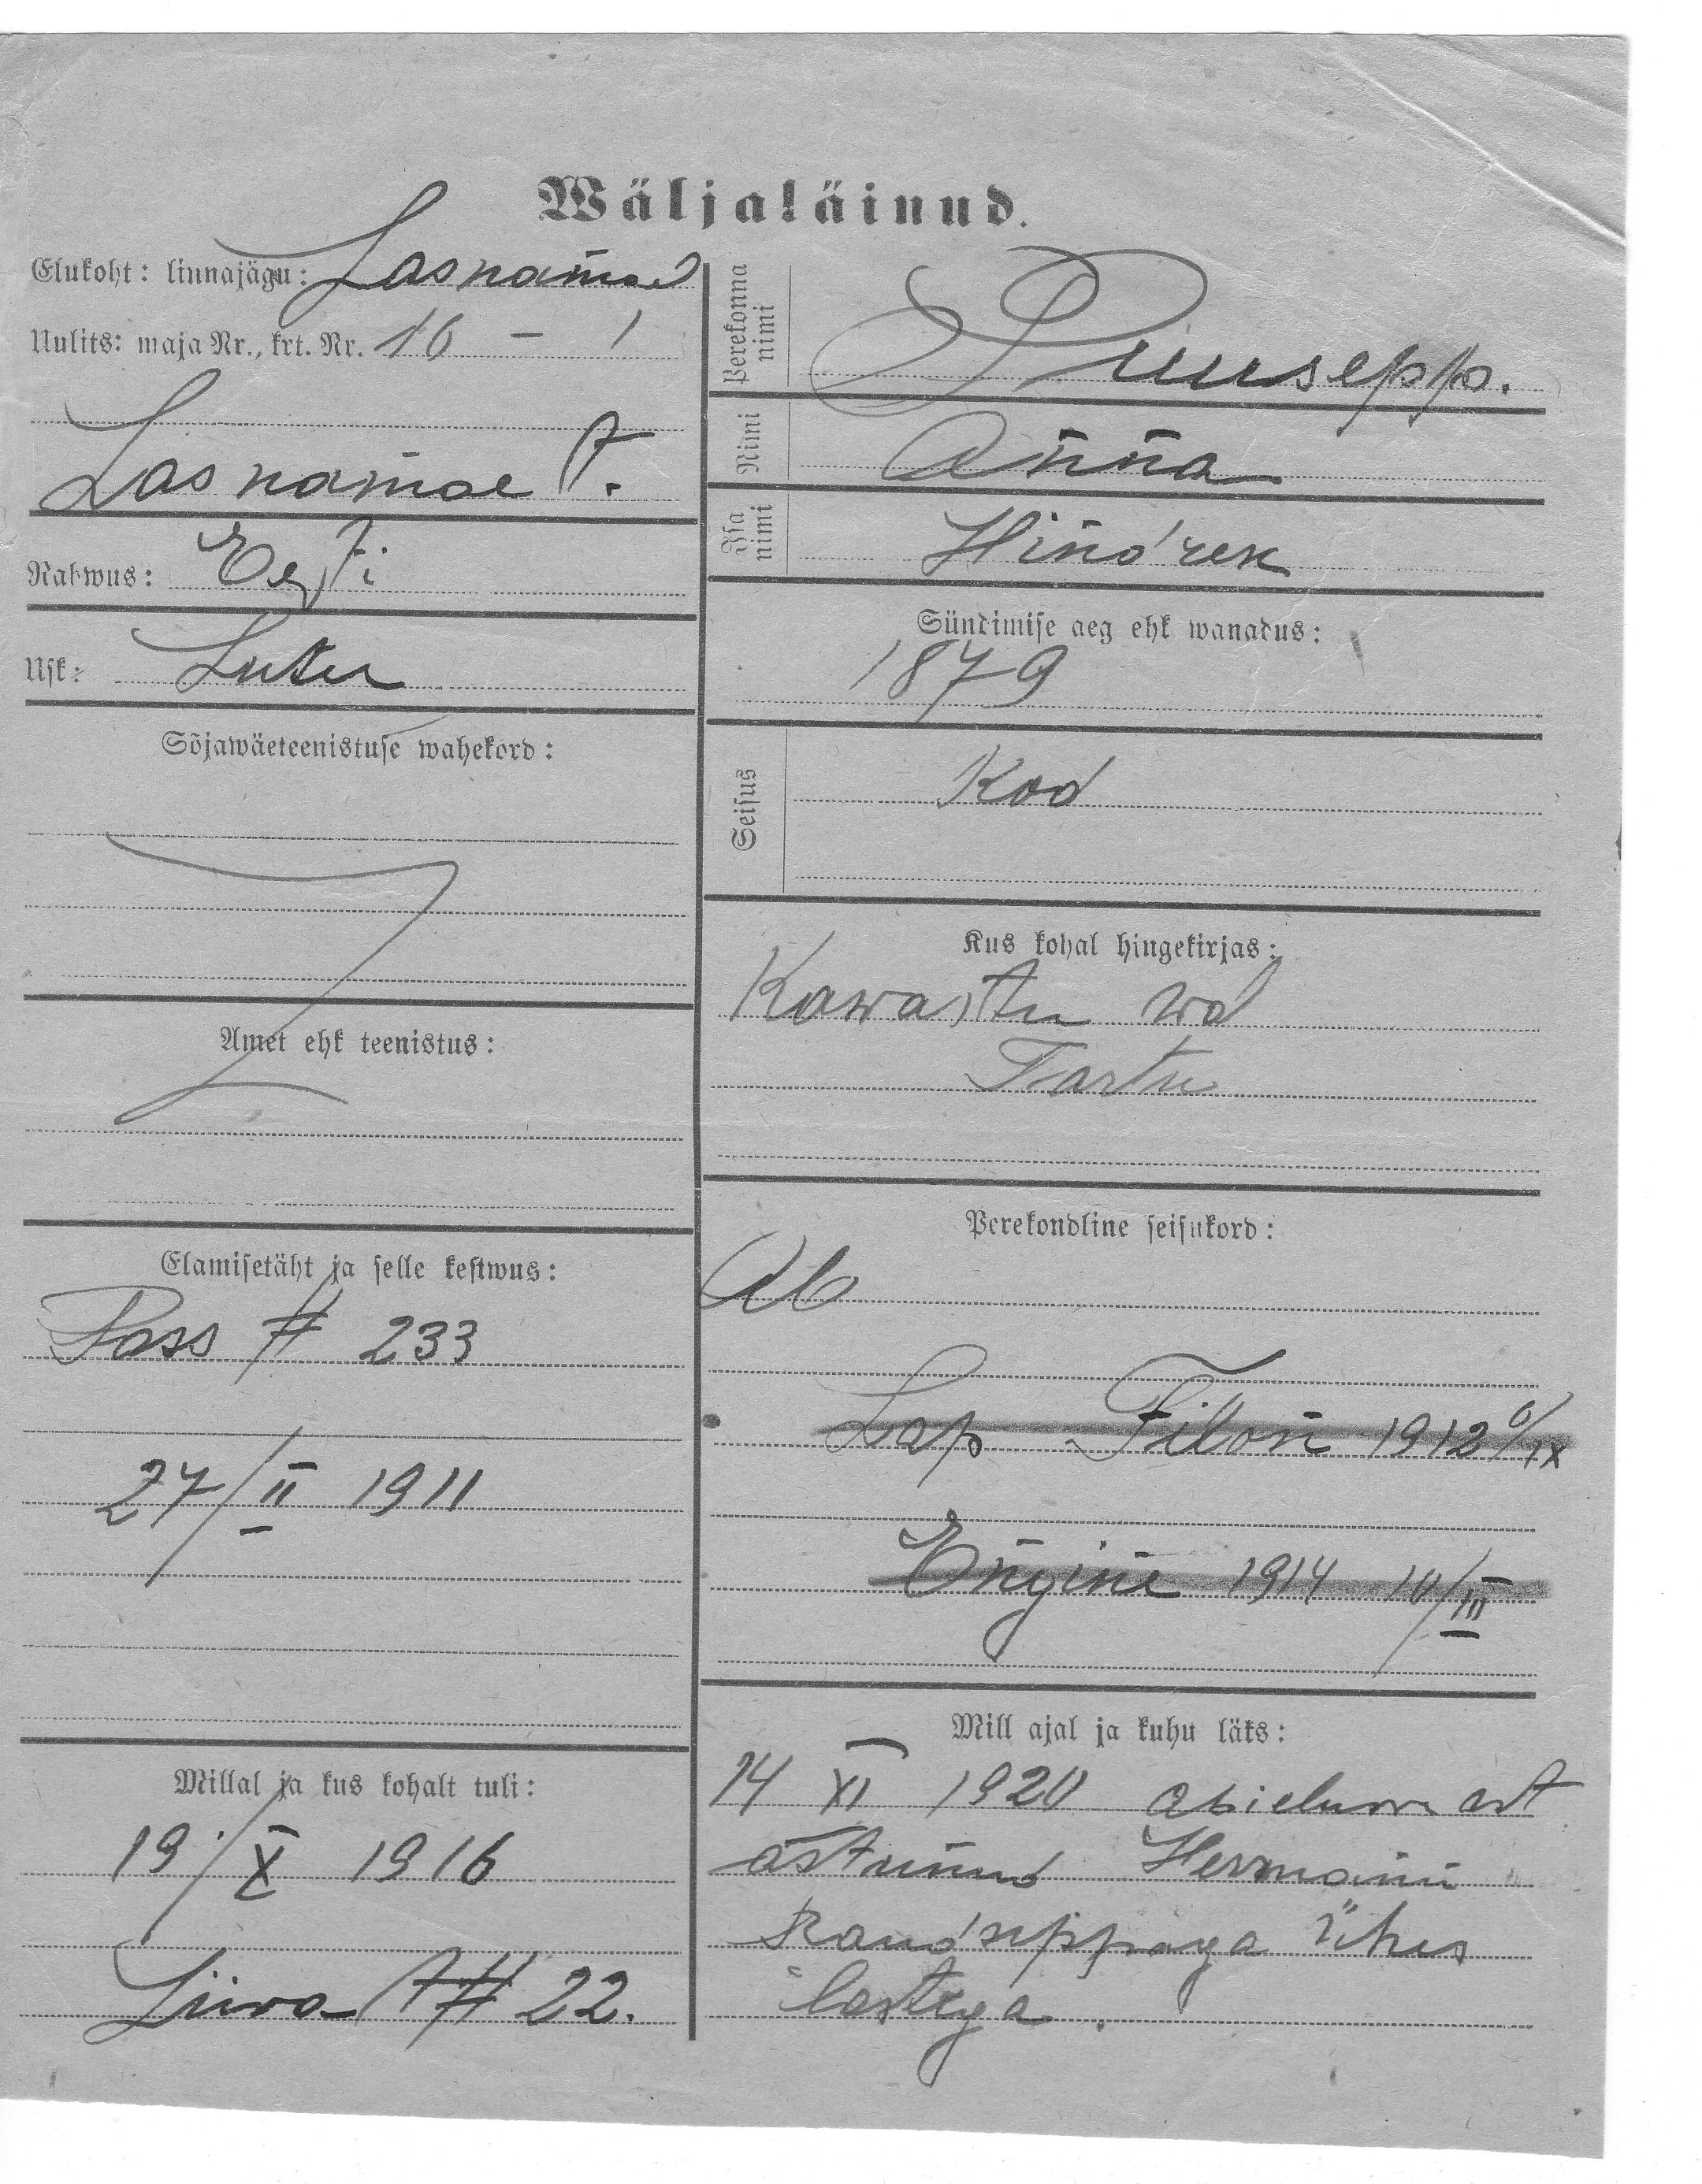 Wäljaläinud.
Elukoht: linnajägu: Lasnamäe
Uulits: maja Nr., krt. Nr. 16 - 1
Lasnamae T.
Rahwus: Eesti
Usk: Luter
Sõjawäeteenistuse wahekord:
Amet ehk teenistus:
Elamisetäht ja selle kestwus:
Pass # 233
27/II 1911
Millal ja kus kohalt tuli:
19/X 1916
Liiva T # 22.
Perekonna nimi
Puusepp.
Nimi
Anna
Isa nimi
Hindrek
Sündimise aeg ehk wanadus:
1879
Seisus
Kod
Kus kohal hingekirjas:
Kawastu wd
Tartu
Perekondline seisukord:
Ab
Lap 1912 /IX
1914 10/III
Mill ajal ja kuhu läks:
14 XI 1920 abielu
astunud Hermann
Raudseppaga ühes
lastega.